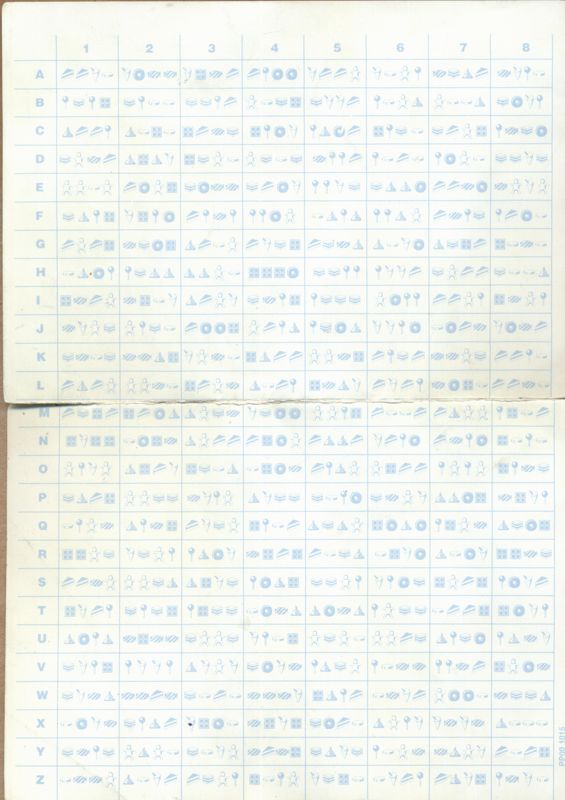 1 2 3 4 5 6 7 8
A
B
C
D
E
F
G
H
I
J
K
L
M
N
O
P
Q
R
S
T
U
V
W
X
Y
Z
PP/00 1015